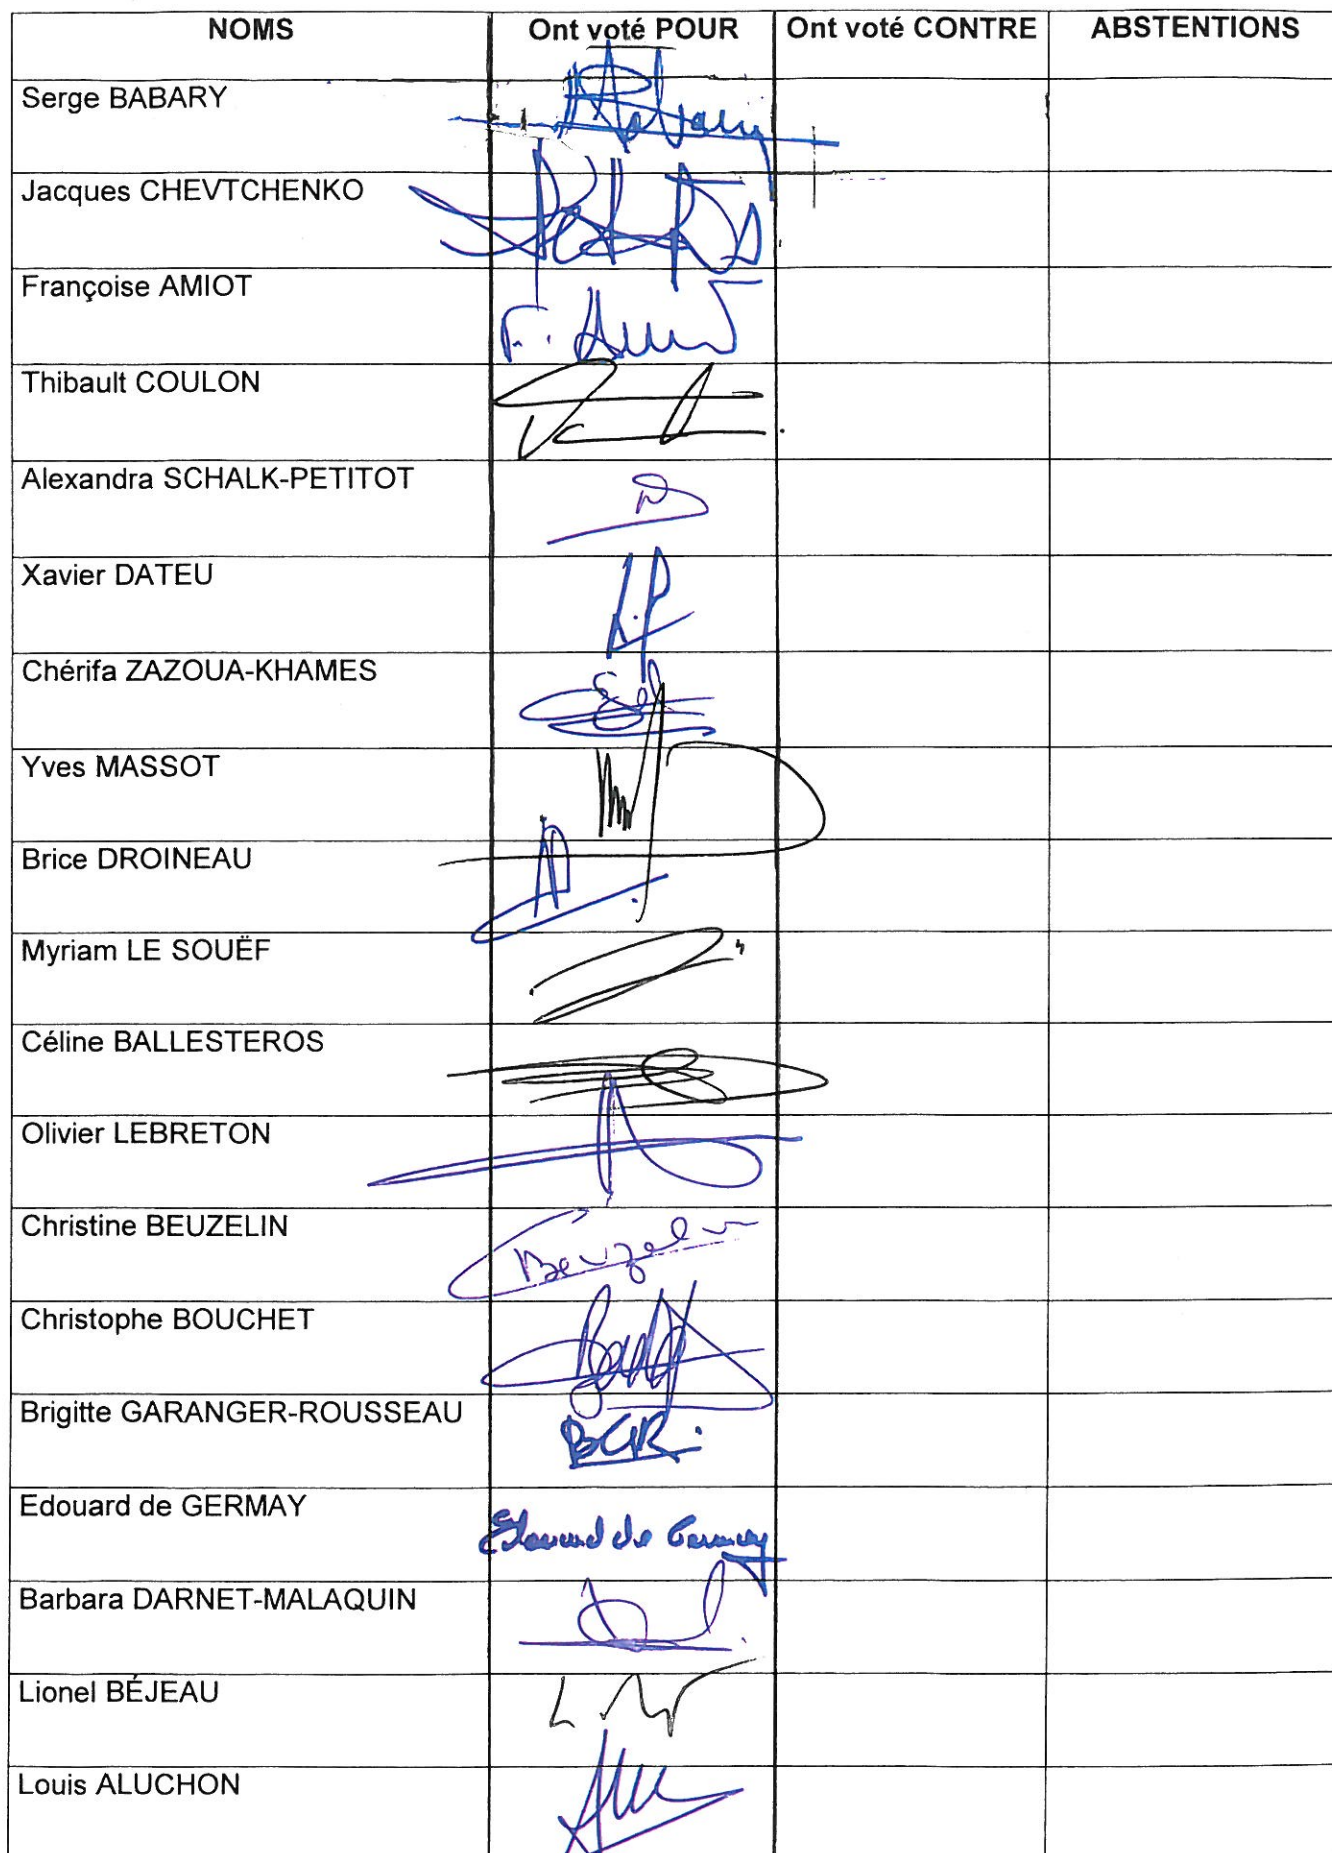 NOMS Ont voté POUR Ont voté CONTRE ABSTENTIONS
Serge BABARY
Jacques CHEVTCHENKO
Françoise AMIOT
Thibault COULON
Alexandra SCHALK-PETITOT
Xavier DATEU
Chérifa ZAZOUA-KHAMES
Yves MASSOT
Brice DROINEAU
Myriam LE SOUËF
Céline BALLESTEROS
Olivier LEBRETON
Christine BEUZELIN
Beuzelin
Christophe BOUCHET
Brigitte GARANGER-ROUSSEAU
BGR
Edouard de GERMAY
Edouard de Germay
Barbara DARNET-MALAQUIN
Lionel BÉJEAU
Louis ALUCHON